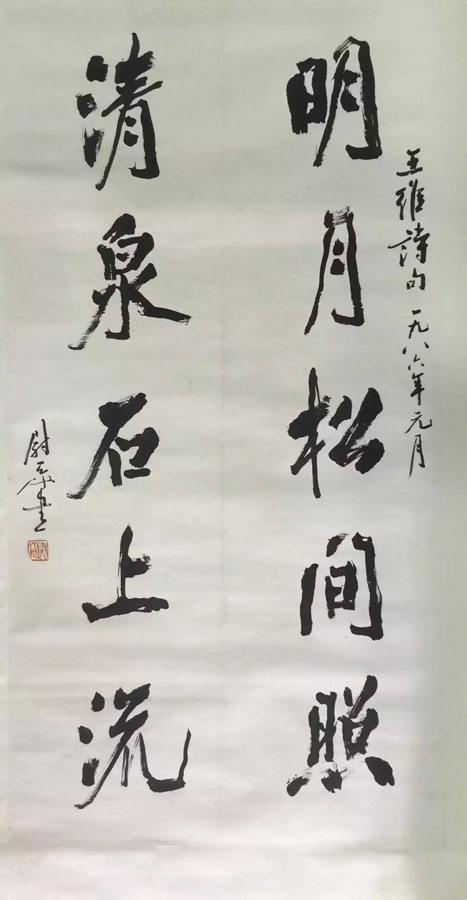 王維詩句 一九八六年元月
明月松间照
清泉石上流
尉天池書